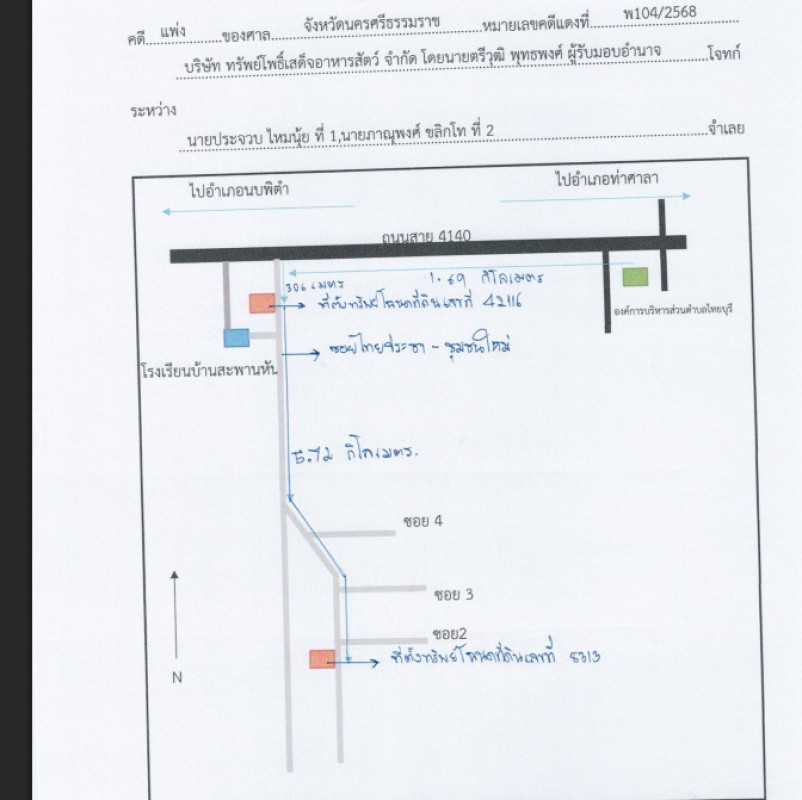 คดี แพ่ง ของศาล จังหวัดนครศรีธรรมราช หมายเลขคดีแดงที่ พ104/2568
บริษัท ทรัพย์โพธิ์เสด็จอาหารสัตว์ จำกัด โดยนายตรีวุฒิ พุทธพงศ์ ผู้รับมอบอำนาจ โจทก์
ระหว่าง
นายประจวบ ไหมนุ้ย ที่ 1,นายภาณุพงศ์ ขลิกโท ที่ 2 จำเลย
ไปอำเภอนบพิตำ
ไปอำเภอท่าศาลา
ถนนสาย 4140
306 เมตร
1.69 กิโลเมตร
ที่ตั้งทรัพย์โฉนดที่ดินเลขที่ 42116
องค์การบริหารส่วนตำบลไทยบุรี
ซอยไทยประชา - ชุมชนใหม่
โรงเรียนบ้านสะพานหัน
5.72 กิโลเมตร.
ซอย 4
ซอย 3
ซอย2
ที่ตั้งทรัพย์โฉนดที่ดินเลขที่ 5313
N